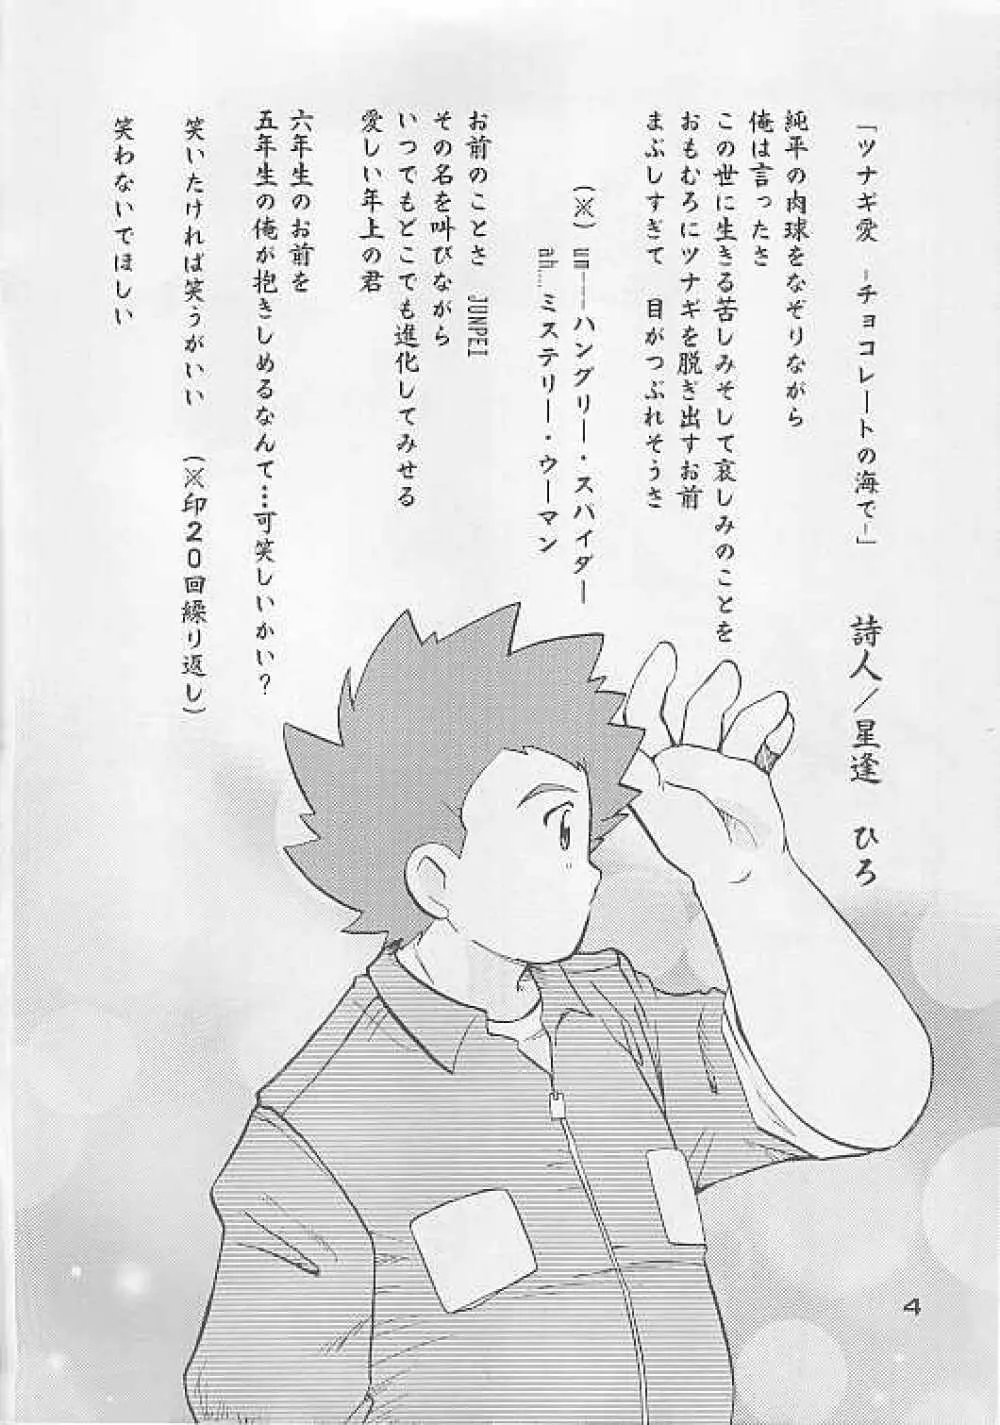 「ツナギ愛　－チョコレートの海で－」　詩人／星逢　ひろ
純平の肉球をなぞりながら
俺は言ったさ
この世に生きる苦しみそして哀しみのことを
おもむろにツナギを脱ぎ出すお前
まぶしすぎて　目がつぶれそうさ
（※）un……ハングリー・スパイダー
ah…,ミステリー・ウーマン
お前のことさ　JUNPEI
その名を叫びながら
いつでもどこでも進化してみせる
愛しい年上の君
六年生のお前を
五年生の俺が抱きしめるなんて…可笑しいかい？
笑いたければ笑うがいい　（※印20回繰り返し）
笑わないでほしい
4